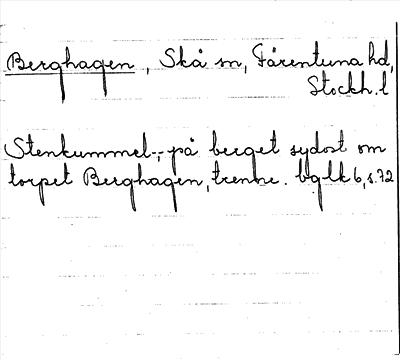 Berghagen, Skå sn, Färentuna hd,
Stockh. l
Stenkummel-, på berget sydost om
torpet Berghagen, trenne. bglk 6, s. 72